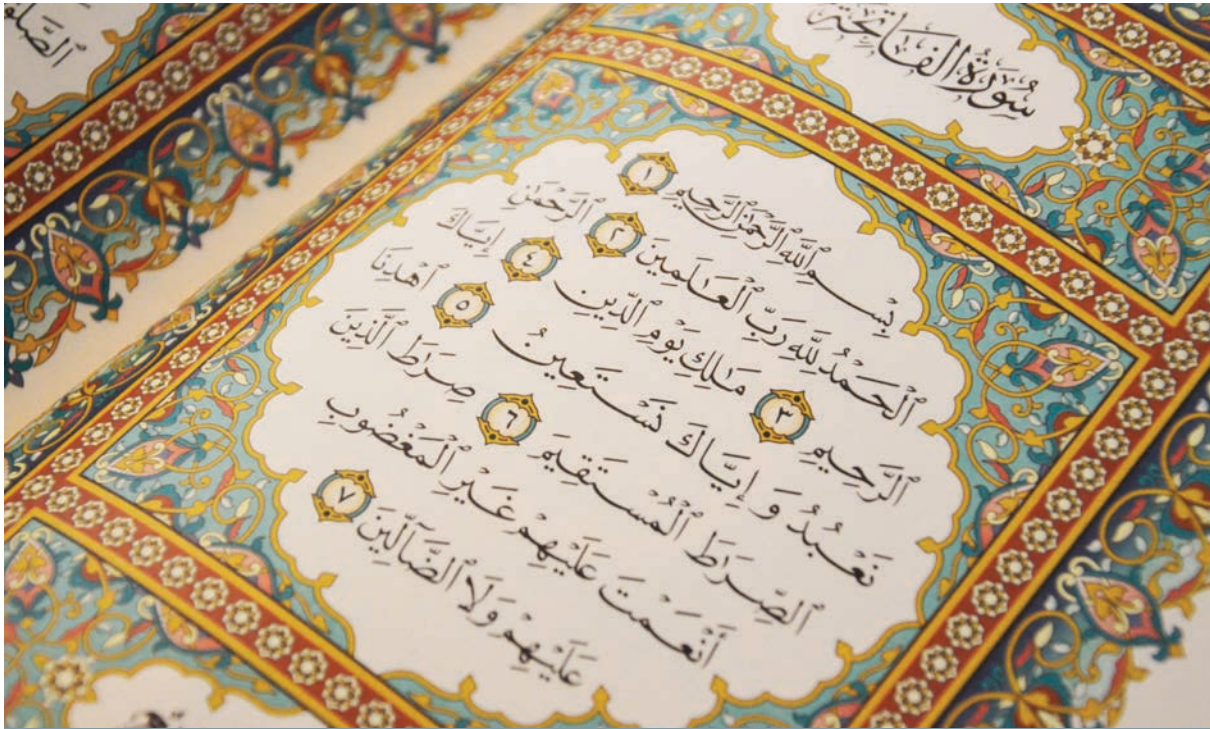 سُورَةُ الفَاتِحَةِ
بِسْمِ ٱللَّهِ ٱلرَّحْمَٰنِ ٱلرَّحِيمِ ١
ٱلْحَمْدُ لِلَّهِ رَبِّ ٱلْعَٰلَمِينَ ٢ ٱلرَّحْمَٰنِ
ٱلرَّحِيمِ ٣ مَٰلِكِ يَوْمِ ٱلدِّينِ ٤ إِيَّاكَ
نَعْبُدُ وَإِيَّاكَ نَسْتَعِينُ ٥ ٱهْدِنَا
ٱلصِّرَٰطَ ٱلْمُسْتَقِيمَ ٦ صِرَٰطَ ٱلَّذِينَ
أَنْعَمْتَ عَلَيْهِمْ غَيْرِ ٱلْمَغْضُوبِ
عَلَيْهِمْ وَلَا ٱلضَّآلِّينَ ٧